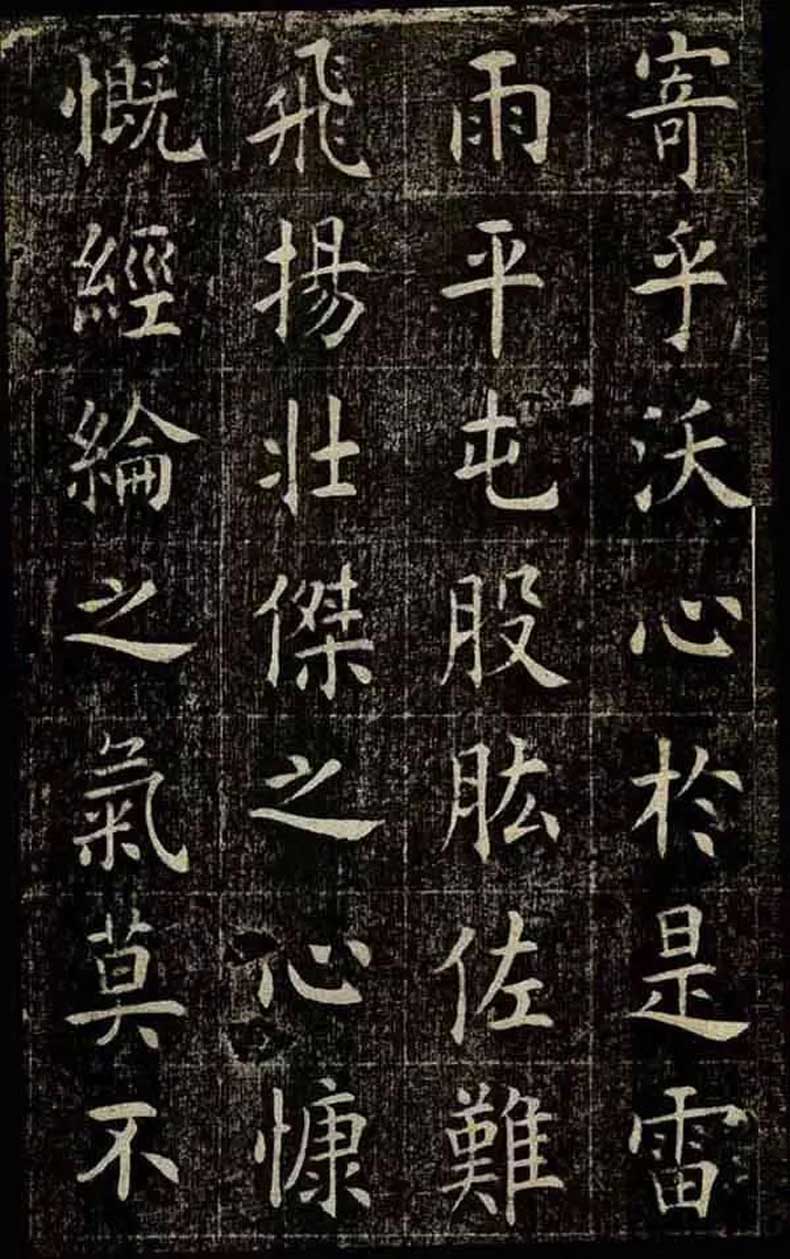 寄乎沃心於是雷
雨平屯股肱佐難
飛揚壯傑之心慷
慨經綸之氣莫不